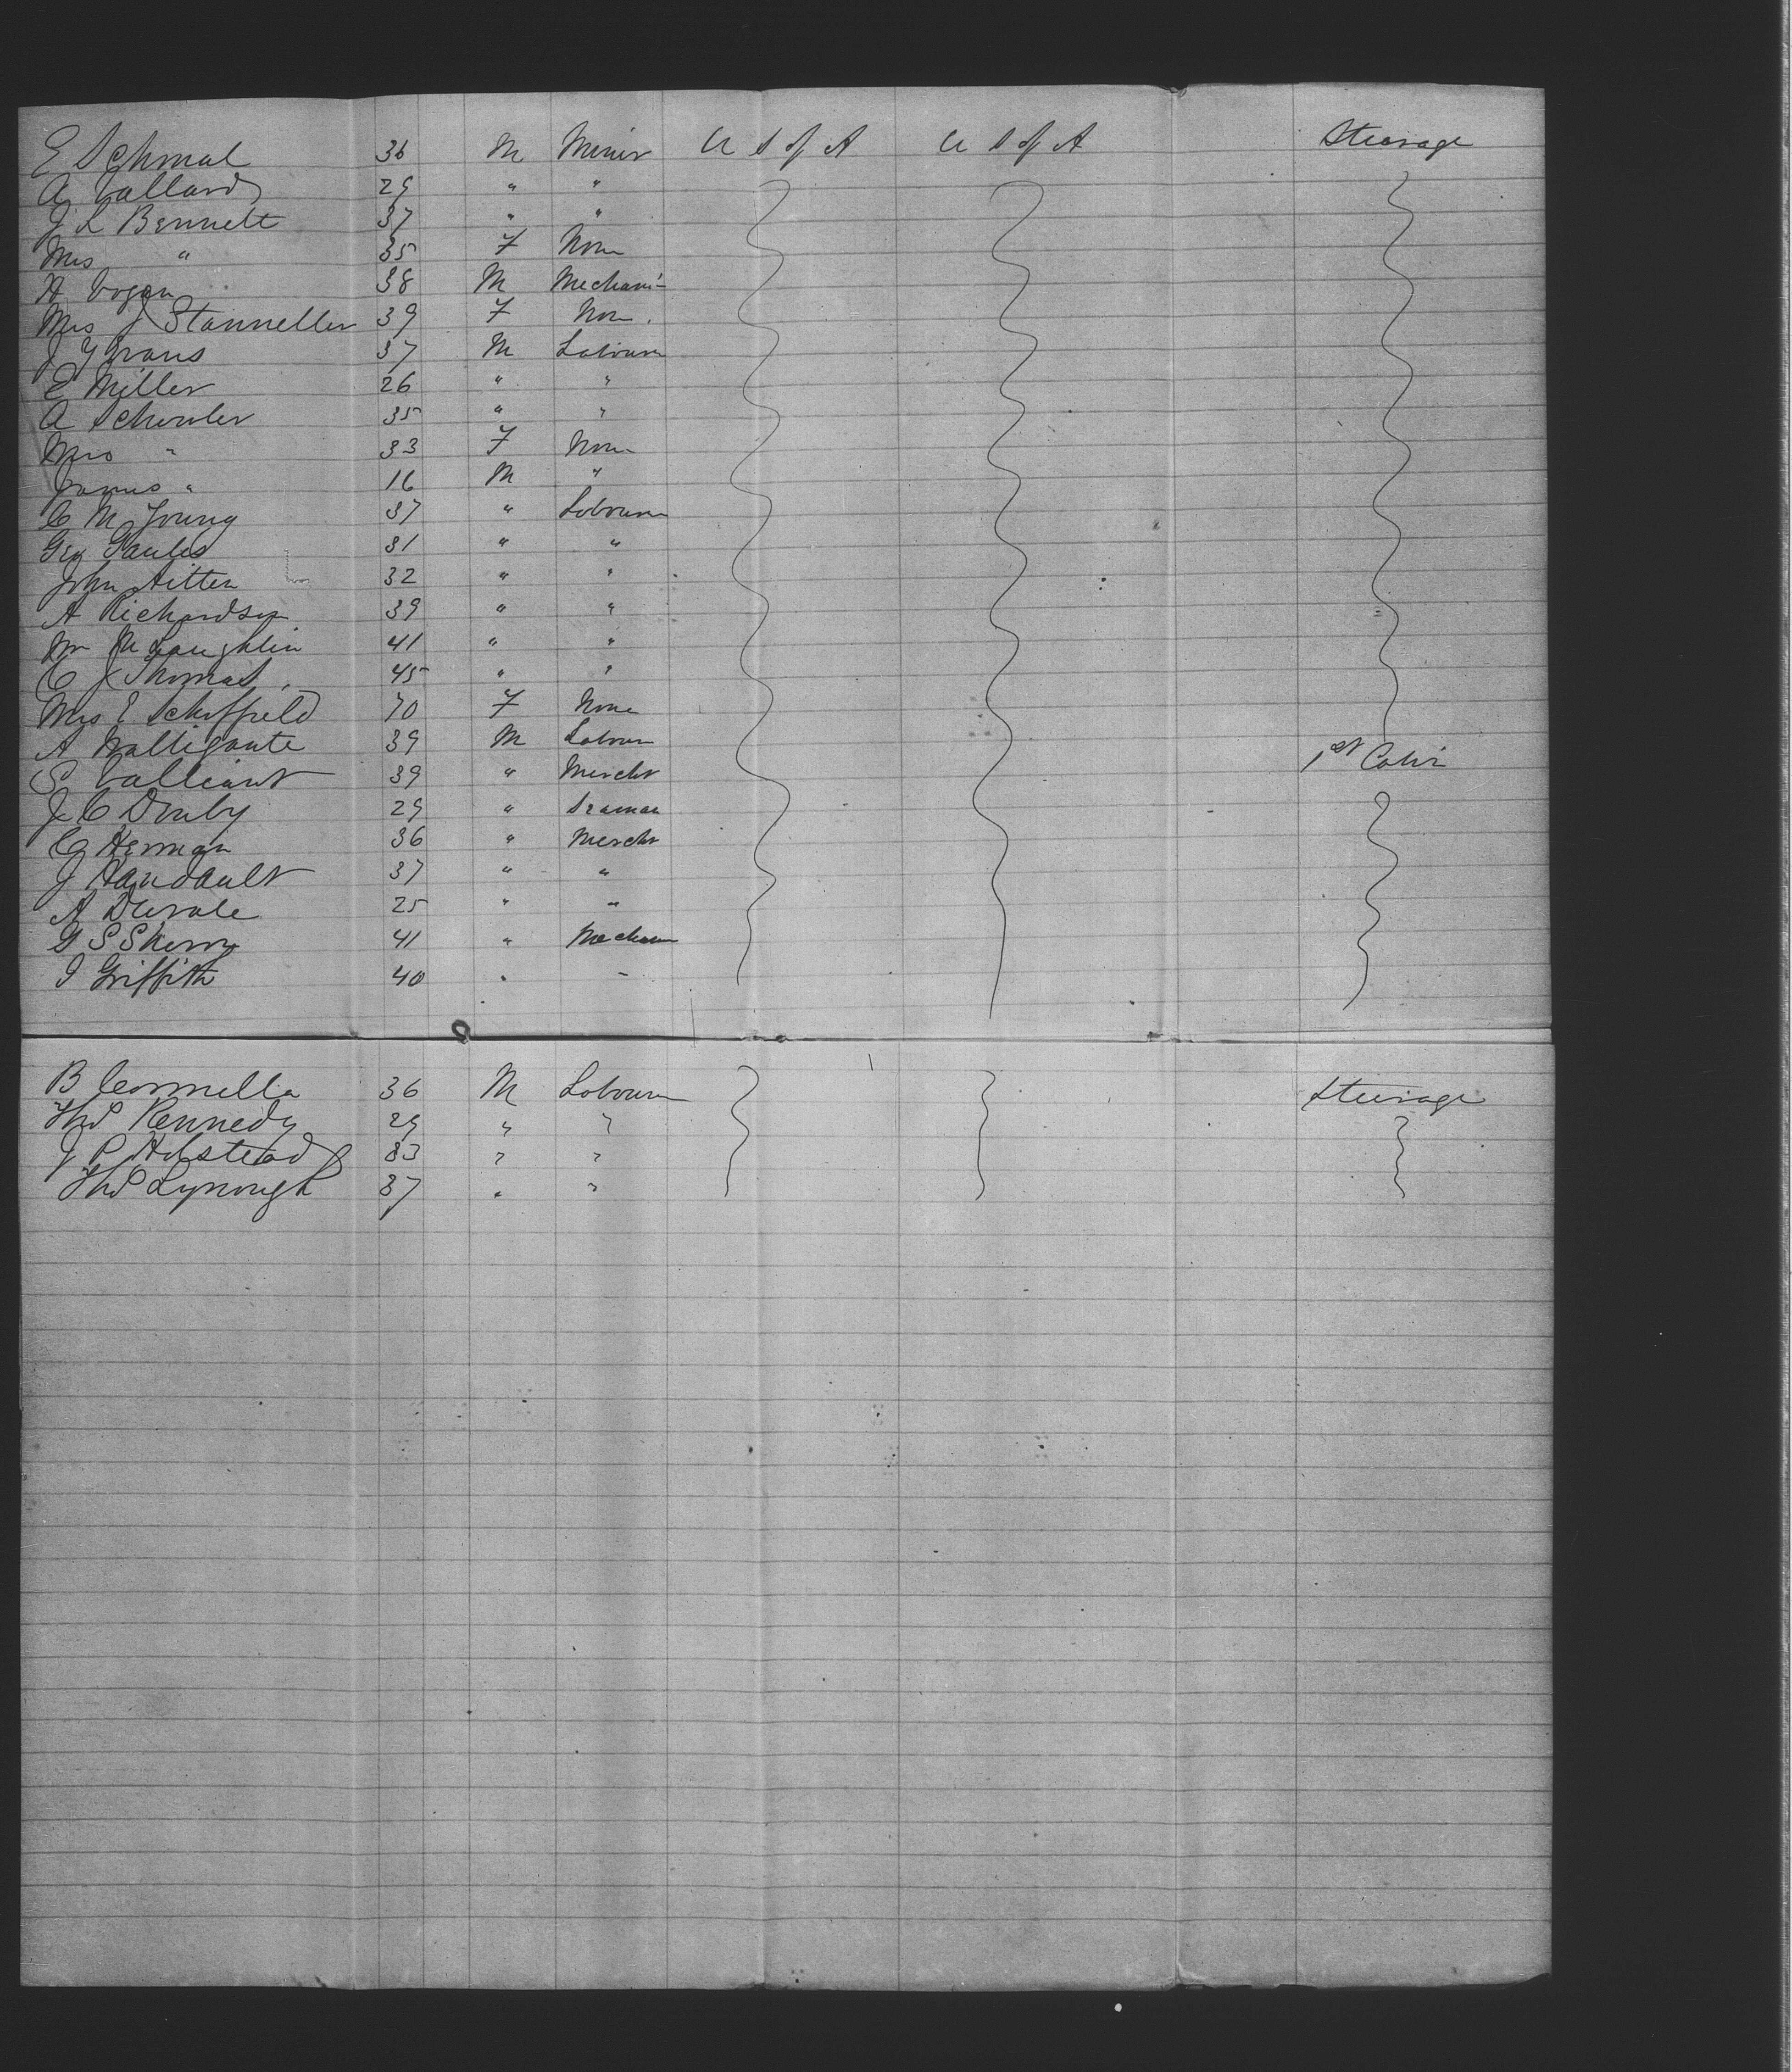 E Schmal 36 M Miner U S of A U S of A Steerage
A Vallard 29 " "
J L Bennett 37 " "
Mrs " 35 F None
H Vogan 38 M Mechanic
Mrs J Stanneller 39 F Non.
J Y Evans 37 M Labourer
E Miller 26 " "
A Schouler 35 " "
Mrs " 33 F None
James " 16 M "
C M Young 37 " Labourer
Geo Gaules 31 " "
John Aitten 32 " "
A Richardson 39 " "
Wm McLaughlin 41 " "
C J Thomas 45 " "
Mrs E Schoffield 70 F None
A 39 M Labourer
S Valliant 39 " Mercht 1st Cabin
J C Denby 29 " Seaman
C Herman 36 " Mercht
J Handault 37 " "
A Durale 25 " "
G S Skerry 41 " Mechani
I Griffith 40 " "
B Connella 36 M Labourer Steerage
Thos Kennedy 29 " "
J P Holstead 33 " "
Thos Lynough 37 " "